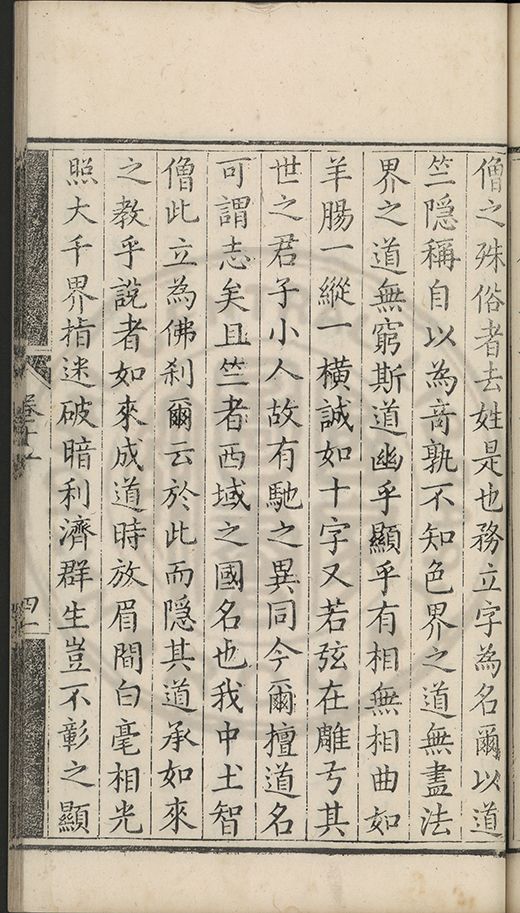 僧之殊俗者去姓是也務立字為名爾以道
竺隱稱自以為奇孰不知色界之道無盡法
界之道無窮斯道幽乎顯乎有相無相曲如
羊腸一縱一橫誠如十字又若弦在雕弓其
世之君子小人故有馳之異同今爾擅道名
可謂志矣且竺者西域之國名也我中土智
僧此立為佛刹爾云於此而隱其道承如來
之教乎說者如來成道時放眉間白毫相光
照大千界指迷破暗利濟群生豈不彰之顯